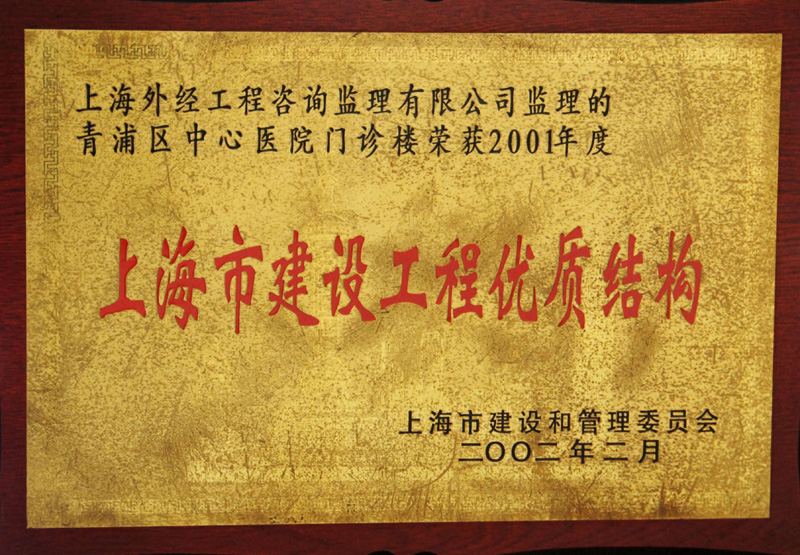 上海外经工程咨询监理有限公司监理的
青浦区中心医院门诊楼荣获2001年度
上海市建设工程优质结构
上海市建设和管理委员会
二〇〇二年二月